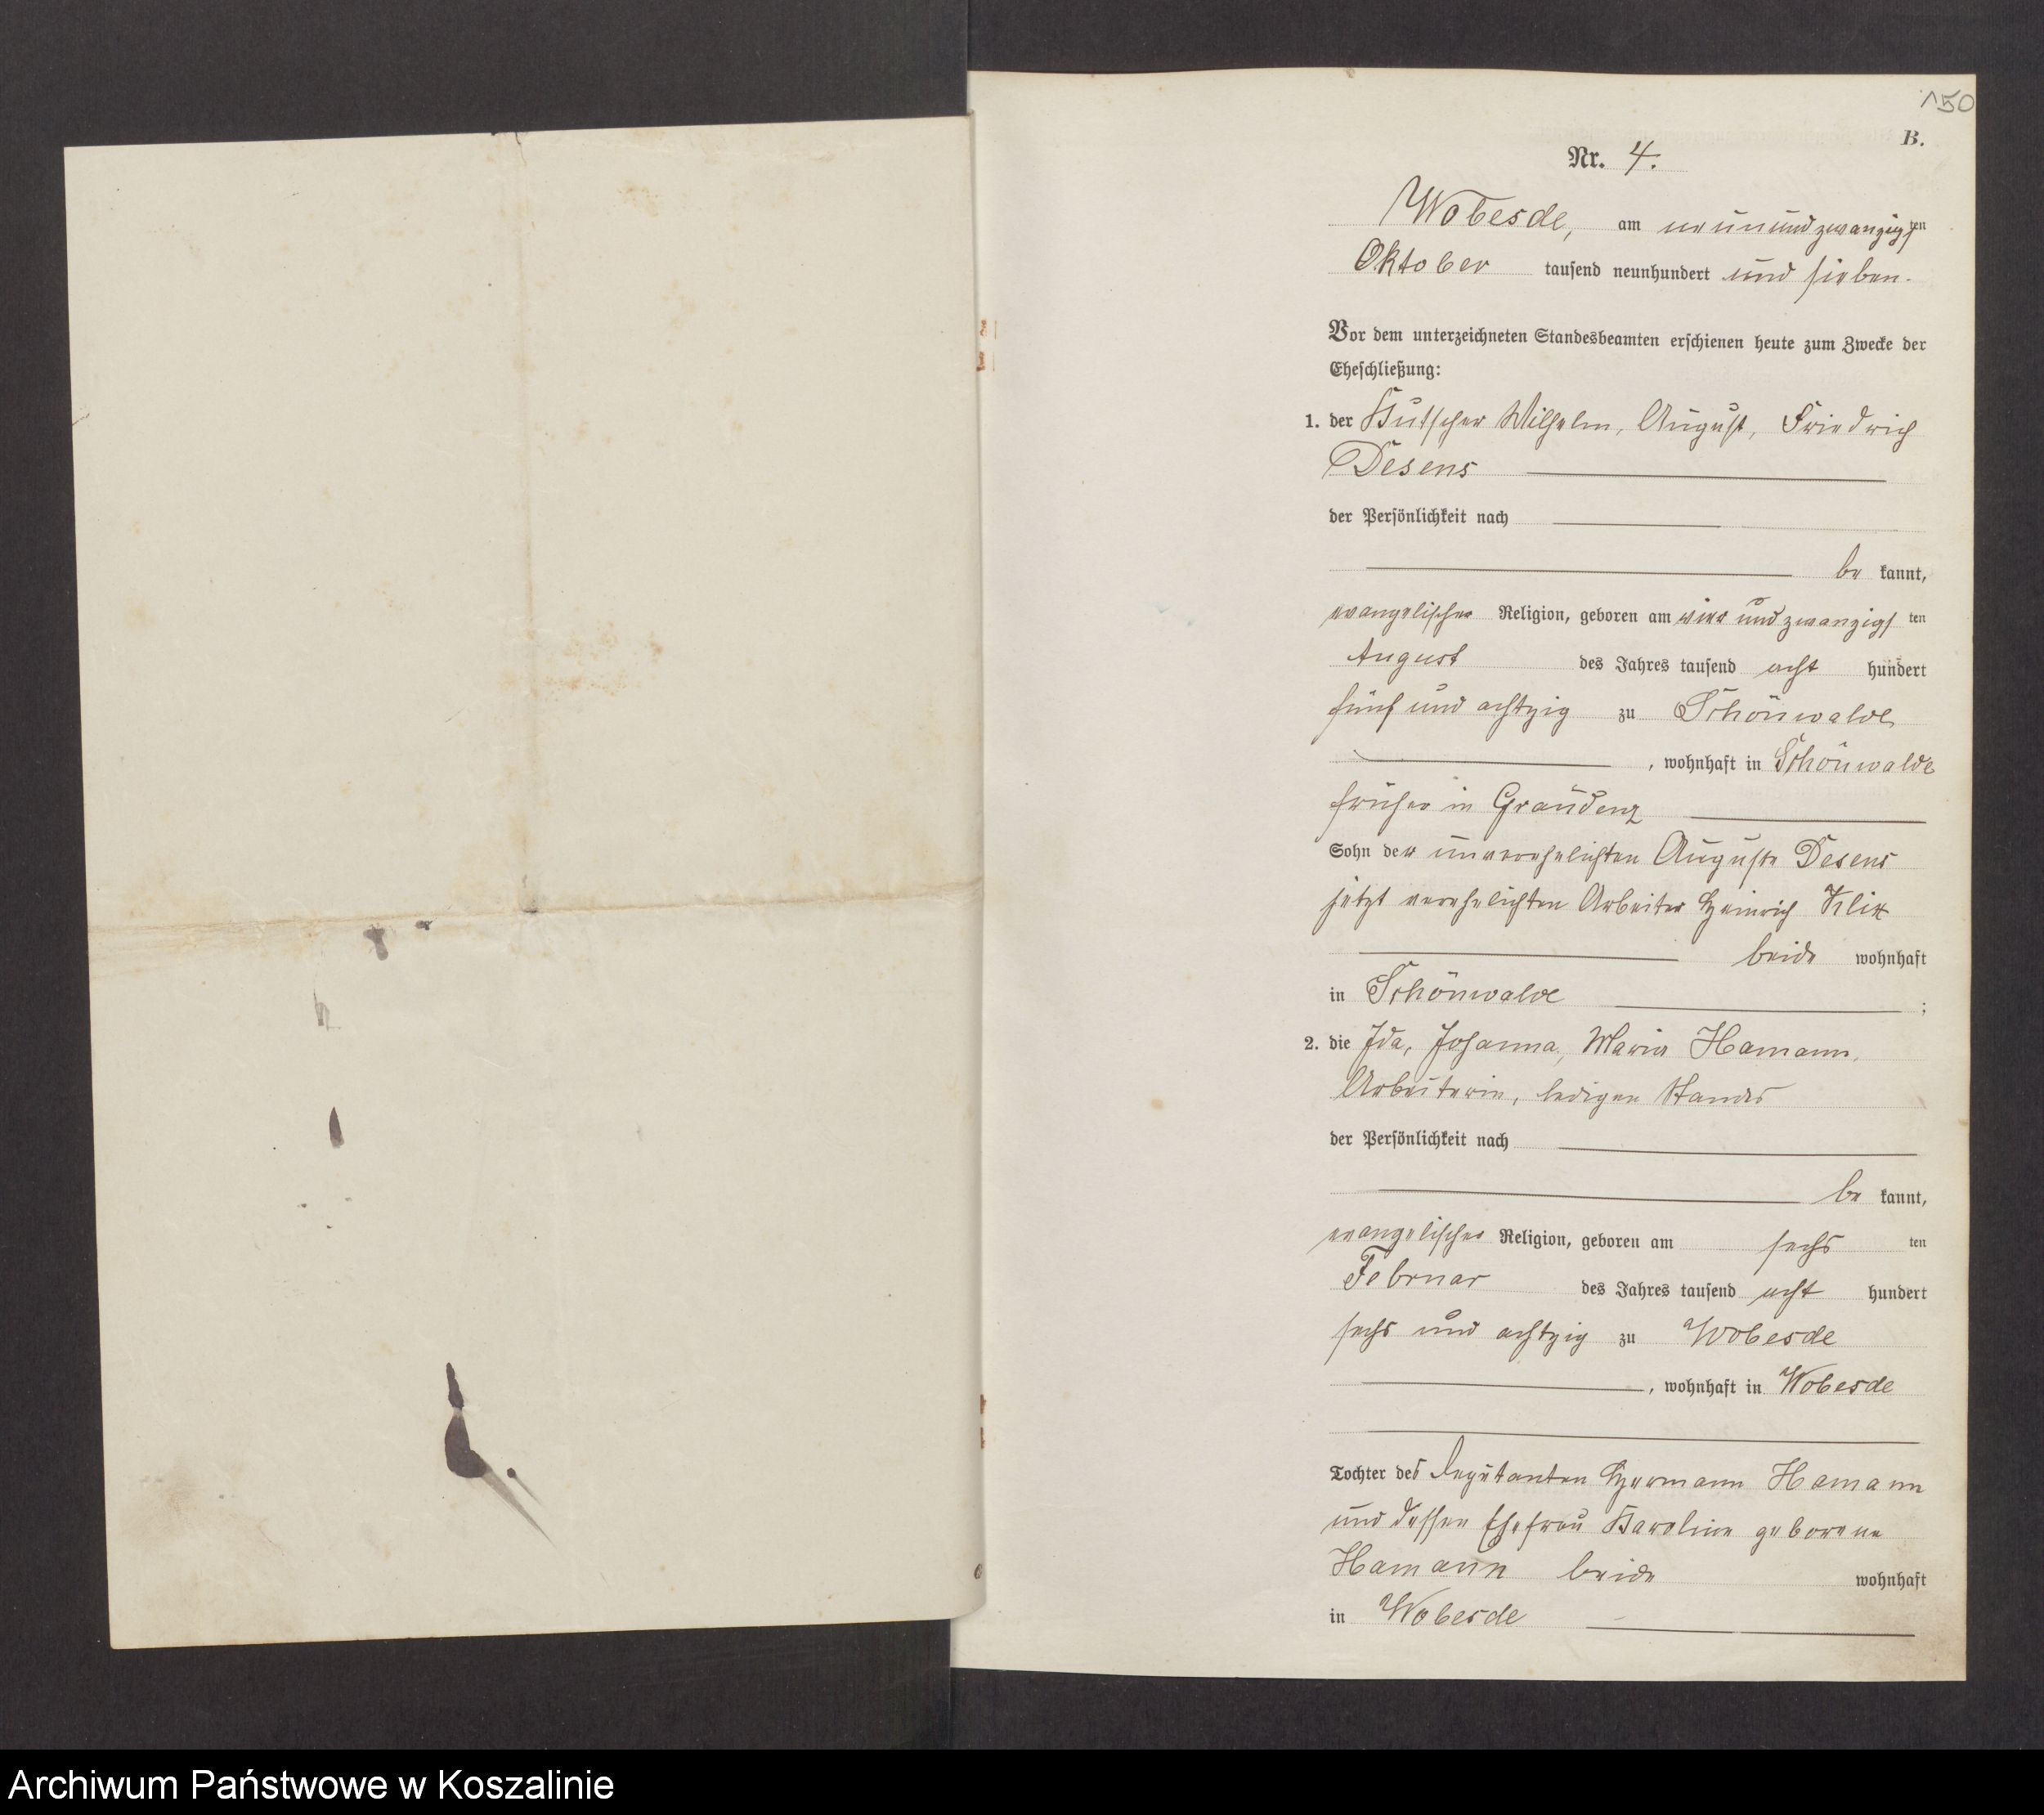 150
B.
Nr. 4.
Wobesde, am neunundzwanzigsten
Oktober tausend neunhundert und sieben.
Vor dem unterzeichneten Standesbeamten erschienen heute zum Zwecke der
Eheschließung:
1. der Kutscher Wilhelm, August, Friedrich
Desens
der Persönlichkeit nach
be kannt,
evangelischer Religion, geboren am vier und zwanzigsten
August des Jahres tausend acht hundert
fünf und achtzig zu Schönwalde
, wohnhaft in Schönwalde
früher in Graudenz
Sohn der unverehelichten Auguste Desens
jetzt verehelichten Arbeiter Heinrich
beide wohnhaft
in Schönwalde ;
2. die Ida, Johanna, Maria Hamann,
Arbeiterin, ledigen Standes
der Persönlichkeit nach
be kannt,
evangelischer Religion, geboren am sechs ten
Februar des Jahres tausend acht hundert
sechs und achtzig zu Wobesde
, wohnhaft in Wobesde
Tochter des Deputanten Hermann Hamann
und dessen Ehefrau Karoline geborene
Hamann beide wohnhaft
in Wobesde
Archiwum Państwowe w Koszalinie